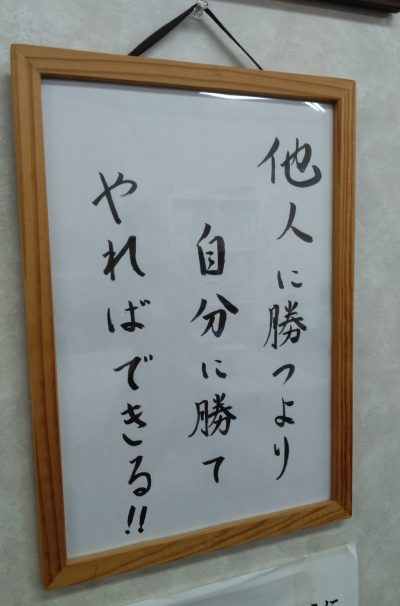 他人に勝つより
自分に勝て
やればできる!!